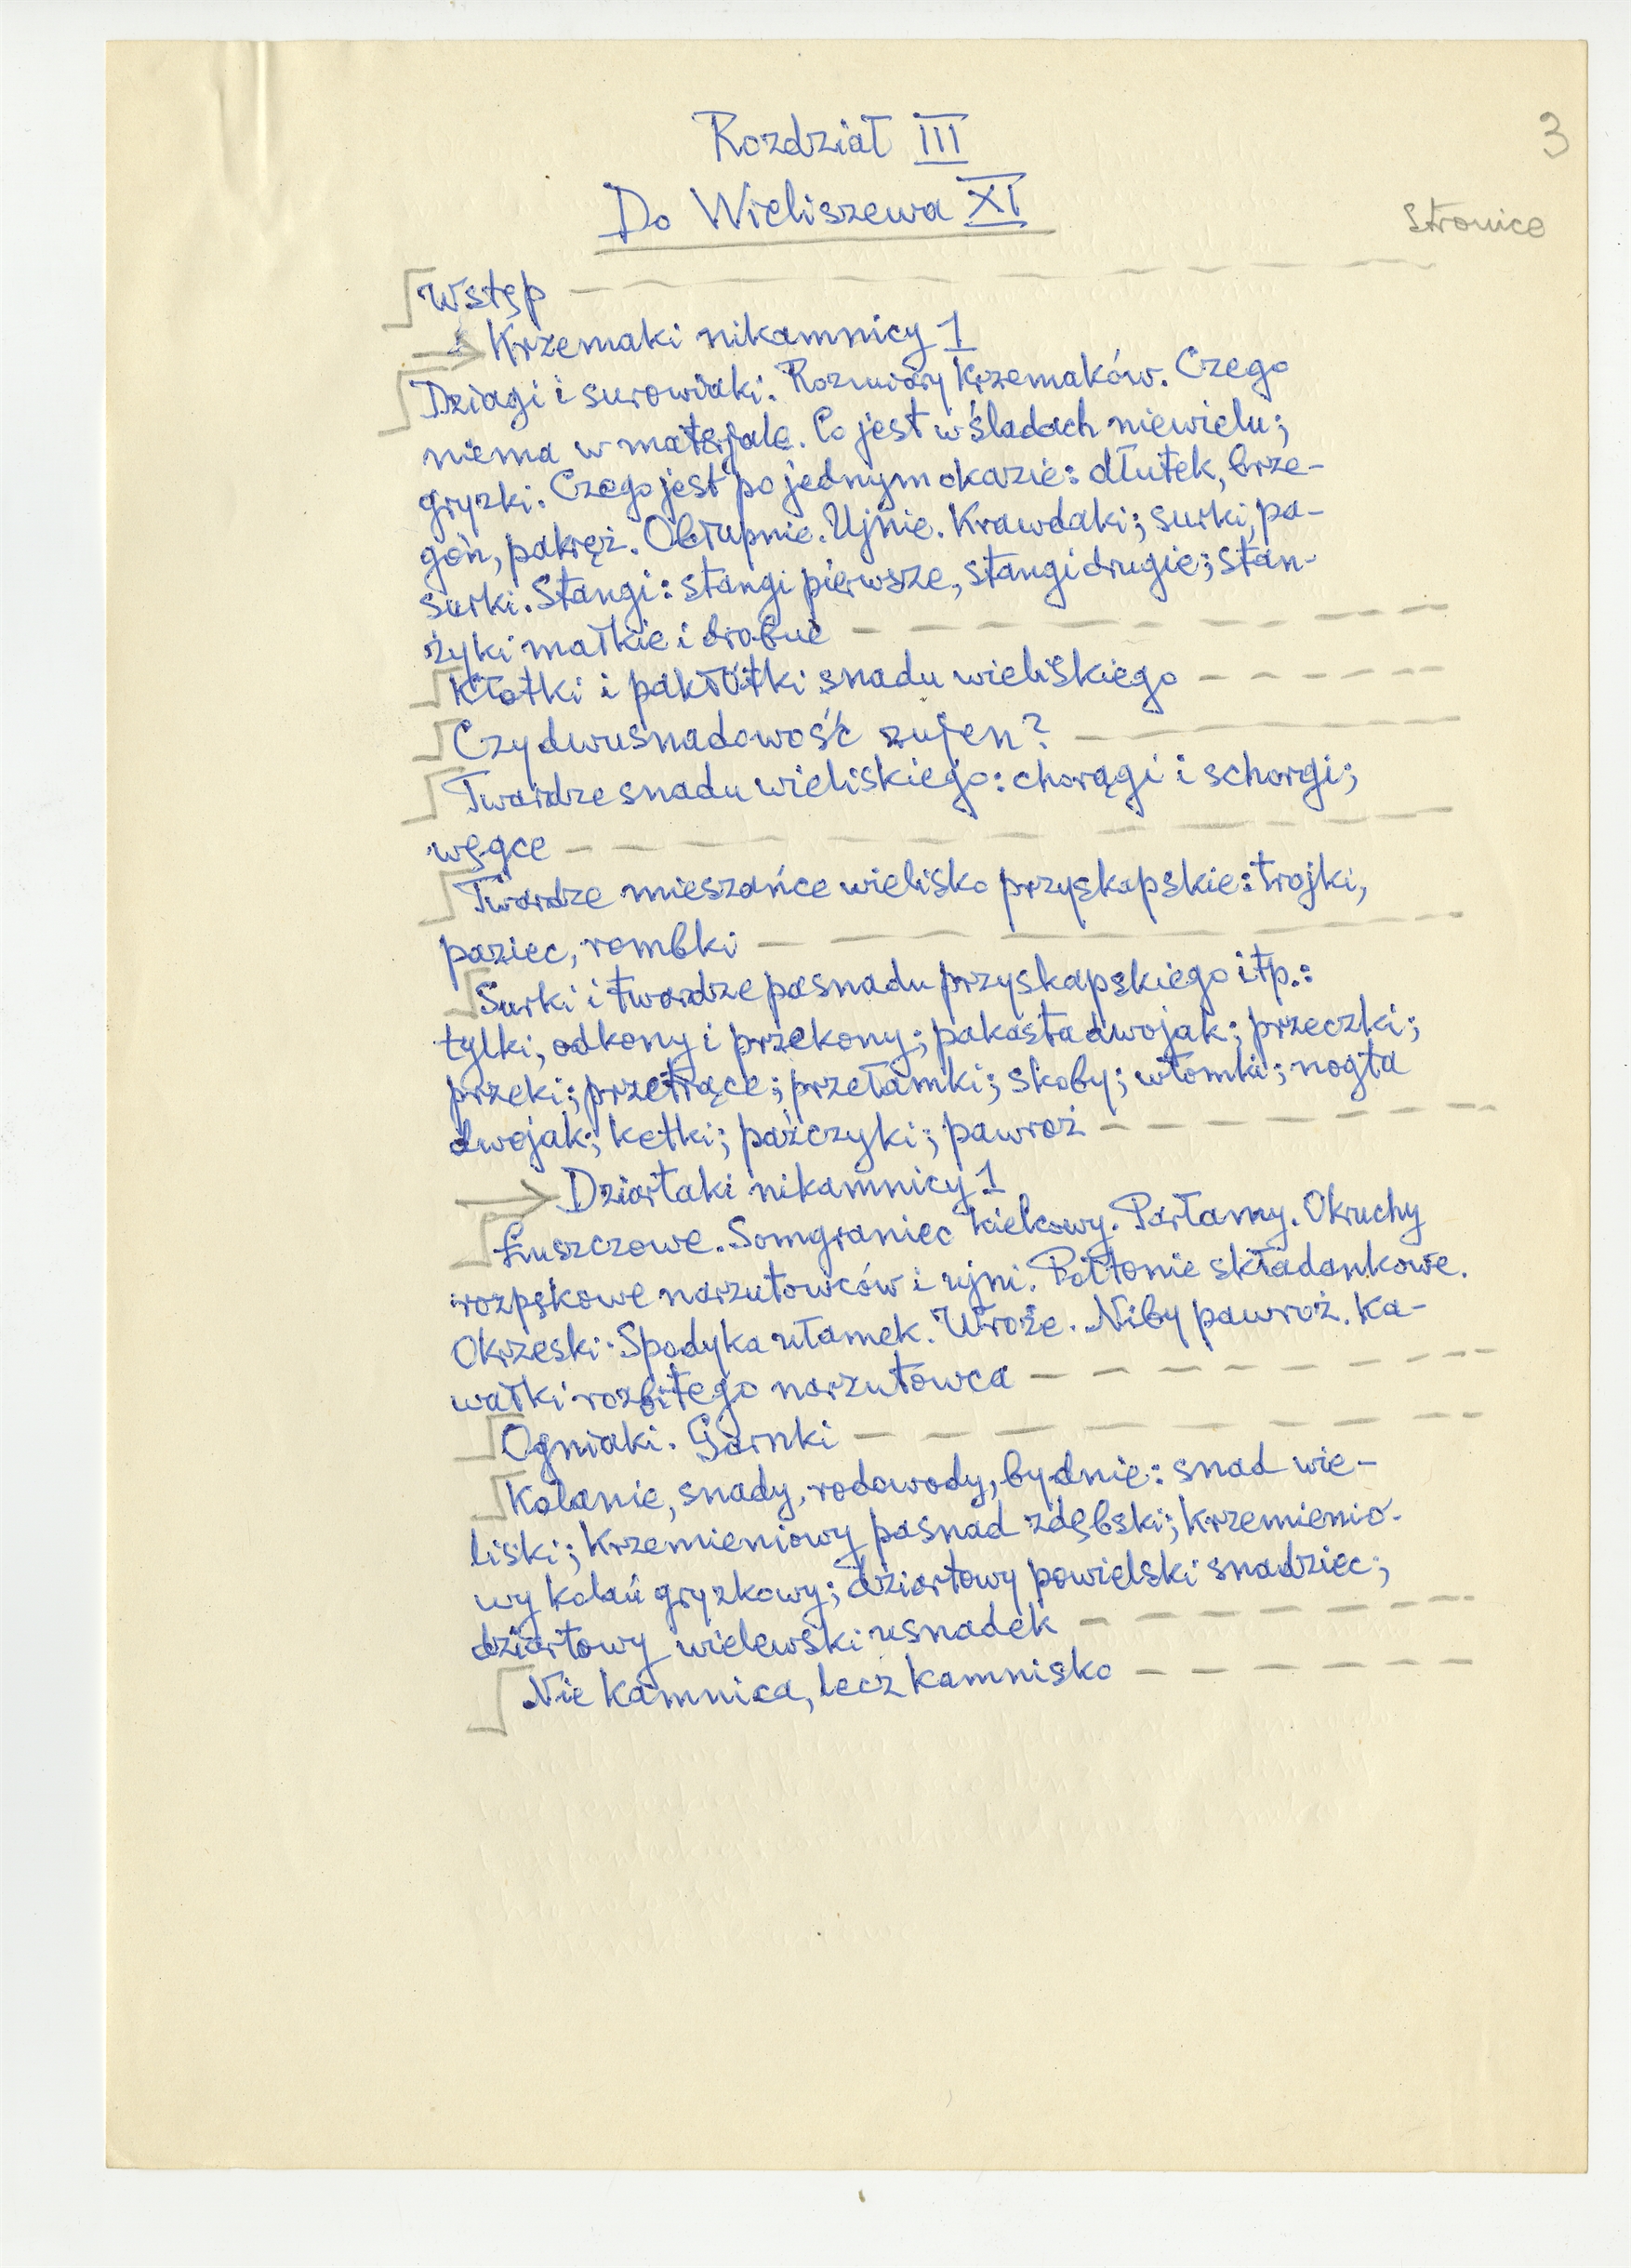 3
Rozdział III
Do Wieliszewa XI
stronice
Wstęp
Krzemaki nikamnicy 1
Dziagi i surowiaki. Rozmiary krzemaków. Czego
niema w materjale. Co jest w śladach niewielu;
gryzki. Czego jest po jednym okazie: dłutek, brze-
goń, pakręż. Obłupnie. Ujnie. Krawdaki; surki, pa-
surki. Stangi: stangi pierwsze, stangi drugie; stan-
żyki małkie i drobne
Kłotki i pakłótki snadu wieliskiego
Czy dwusnadowość zujen?
Twardze snadu wieliskiego: chorągi i schorgi;
węgce
Twardze mieszańce wielisko przyskapskie: trojki,
paziec, rombki
Surki i twardze pasnadu przyskapskiego itp.:
tylki; odkony i przekony; pakosta dwojak; przeczki;
przeki; przetrące; przełamki; skoby; włomki; nogta
dwojak; ketki; paźczyki; pawroż
Dziartaki nikamnicy 1
Łuszczowe. Somgraniec kielcowy. Parłamy. Okruchy
rozpękowe narzutowców i ujni. Połtonie składankowe.
Okrzeski. Spodyka ułamek. Wroże. Niby pawroż. Ka-
wałki rozbitego narzutowca
Ogniaki. Garnki
Kolanie, snady, rodowody, bydnie: snad wie-
liski; krzemieniowy pasnad zdębski; krzemienio-
wy kolań gryzkowy; dziartowy powielski snadziec;
dziartowy wielewski usnadek
Nie kamnica, lecz kamnisko